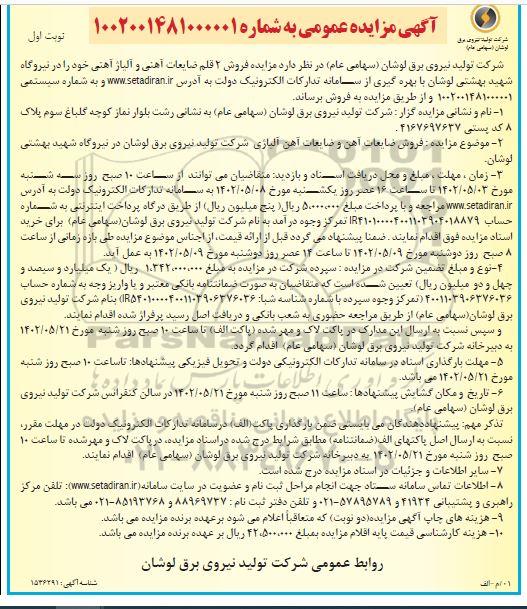 شرکت تولید نیروی برق لوشان (سهامی عام)
آگهی مزایده عمومی به شماره ۱۰۰۲۰۰۱۴۸۱۰۰۰۰۰۱
نوبت اول
شرکت تولید نیروی برق لوشان (سهامی عام) در نظر دارد مزایده فروش ۲ قلم ضایعات آهنی و آلیاژ آهنی خود را در نیروگاه
شهید بهشتی لوشان با بهره گیری از سـامانه تدارکات الکترونیک دولت به آدرس www.setadiran.ir و به شماره سیستمی
۱۰۰۲۰۰۱۴۸۱۰۰۰۰۰۱ و از طریق مزایده به فروش برساند.
۱- نام و نشانی مزایده گزار : شرکت تولید نیروی برق لوشان (سهامی عام) به نشانی رشت بلوار نماز کوچه گلباغ سوم پلاک
۸ کد پستی ۴۱۶۷۶۹۷۶۳۷.
۲- موضوع مزایده : فروش ضایعات آهن و ضایعات آهن آلیاژی شرکت تولید نیروی برق لوشان در نیروگاه شهید بهشتی
لوشان.
۳- زمان ، مهلت ، مبلغ و محل دریافت اسـناد و بازدید: متقاضیان می توانند از سـاعت ۱۰ صبح روز سـه شـنبه
مورخ ۱۴۰۲/۰۵/۰۳ تا سـاعت ۱۶ عصر روز یکشـنبه مورخ ۱۴۰۲/۰۵/۰۸ به سـامانه تدارکات الکترونیک دولت به آدرس
www.setadiran.ir مراجعه و با پرداخت مبلغ ۵.۰۰۰.۰۰۰ ریال( پنج میلیون ریال) از طریق درگاه پرداخت اینترنتی به شـماره
حساب تمرکز وجوه درآمد به نام شرکت تولید نیروی برق لوشان(سهامی عام) برای خرید
اسناد مزایده فوق اقدام نمایند . ضمنا پیشنهاد می گردد قبل از ارائه قیمت، از اجناس موضوع مزایده طی بازه زمانی از ساعت
۸ صبح روز دوشنبه مورخ ۱۴۰۲/۰۵/۰۹ تا ساعت ۱۴ عصر روز دوشنبه مورخ ۱۴۰۲/۰۵/۰۹ به عمل آید.
۴-نوع و مبلغ تضمین شرکت در مزایده : سپرده شرکت در مزایده به مبلغ ۱.۳۴۲.۰۰۰.۰۰۰ ریال ( یک میلیارد و سیصد و
چهل و دو میلیون ریال) تعیین شـده است که متقاضیان به صورت ضمانتنامه بانکی معتبر و یا واریز وجه به شماره حساب
۴۰۰۱۱۰۳۹۰۶۳۷۶۰۳۶ (تمرکز وجوه سپرده با شماره شناسه شبا: ) بنام شرکت تولید نیروی
برق لوشان(سهامی عام) از طریق مراجعه حضوری به شعب بانکی و دریافت اصل رسید پرفراژ شده اقدام نمایند.
و سپس نسبت به ارسال این مدارک در پاکت لاک و مهر شده (پاکت الف) تا ساعت ۱۰ صبح روز شنبه مورخ ۱۴۰۲/۰۵/۲۱
به دبیرخانه شرکت تولید نیروی برق لوشان (سهامی عام) اقدام گردد.
۵- مهلت بارگذاری اسناد در سامانه تدارکات الکترونیکی دولت و تحویل فیزیکی پیشنهادها: تاساعت ۱۰ صبح روز شنبه
مورخ ۱۴۰۲/۰۵/۲۱ می باشد.
۶- تاریخ و مکان گشایش پیشنهادها : ساعت ۱۱ صبح روز شنبه مورخ ۱۴۰۲/۰۵/۲۱ در سالن کنفرانس شرکت تولید نیروی
برق لوشان (سهامی عام).
تذکر مهم: پیشنهاددهندگان می بایستی ضمن بارگذاری پاکت(الف) درسامانه تدارکات الکترونیک دولت در مهلت مقرر،
نسبت به ارسال اصل پاکتهای الف(ضمانتنامه) مطابق شرایط درج شده دراسناد مزایده، درپاکت لاک و مهرشده تا ساعت ۱۰
صبح روز شنبه مورخ ۱۴۰۲/۰۵/۲۱ به دبیرخانه شرکت تولید نیروی برق لوشان (سهامی عام) اقدام نمایند.
۷- سایر اطلاعات و جزئیات در اسناد مزایده درج شده است.
۸- اطلاعات تماس سامانه سـتاد جهت انجام مراحل ثبت نام و عضویت در سایت سامانه(www.setadiran.ir): تلفن مرکز
راهبری و پشتیبانی ۴۱۹۳۴ و ۵۷۸۹۵۷۸۹-۰۲۱ و تلفن دفتر ثبت نام : ۸۸۹۶۹۷۳۷ و ۸۵۱۹۳۷۶۸-۰۲۱ می باشد.
۹- هزینه های چاپ آگهی مزایده(دو نوبت) که متعاقباً اعلام می شود برعهده برنده مزایده می باشد.
۱۰- هزینه کارشناسی قیمت پایه اقلام مزایده بمبلغ ۴۲.۵۰۰.۰۰۰ ریال بر عهده برنده مزایده می باشد.
روابط عمومی شرکت تولید نیروی برق لوشان
۰۱/م-الف
شناسه آگهی: ۱۵۳۶۲۹۱